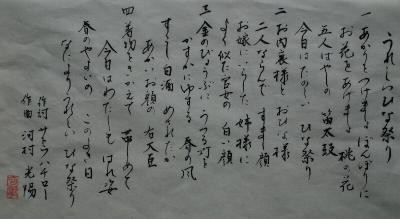 うれしいひな祭り
一 あかりをつけましょ ぼんぼりに
お花をあげましょ 桃の花
五人ばやしの 笛太鼓
今日はたのしい ひな祭り
二 お内裏様と おひな様
二人ならんで すまし顔
お嫁にいらした 姉様に
よく似た官女の 白い顔
三 金のびょうぶに うつる灯を
かすかにゆする 春の風
すこし白酒 めされたか
あかいお顔の 右大臣
四 着物をきかえて 帯しめて
今日はわたしも はれ姿
春のやよいの このよき日
なによりうれしい ひな祭り
作詞 サトウハチロー
作曲 河村光陽